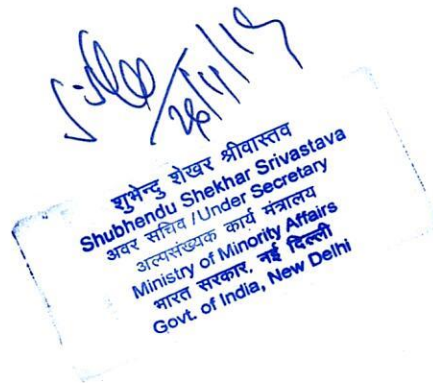 26/11/19
शुभेन्दु शेखर श्रीवास्तव
Shubhendu Shekhar Srivastava
अवर सचिव /Under Secretary
अल्पसंख्यक कार्य मंत्रालय
Ministry of Minority Affairs
भारत सरकार, नई दिल्ली
Govt. of India, New Delhi